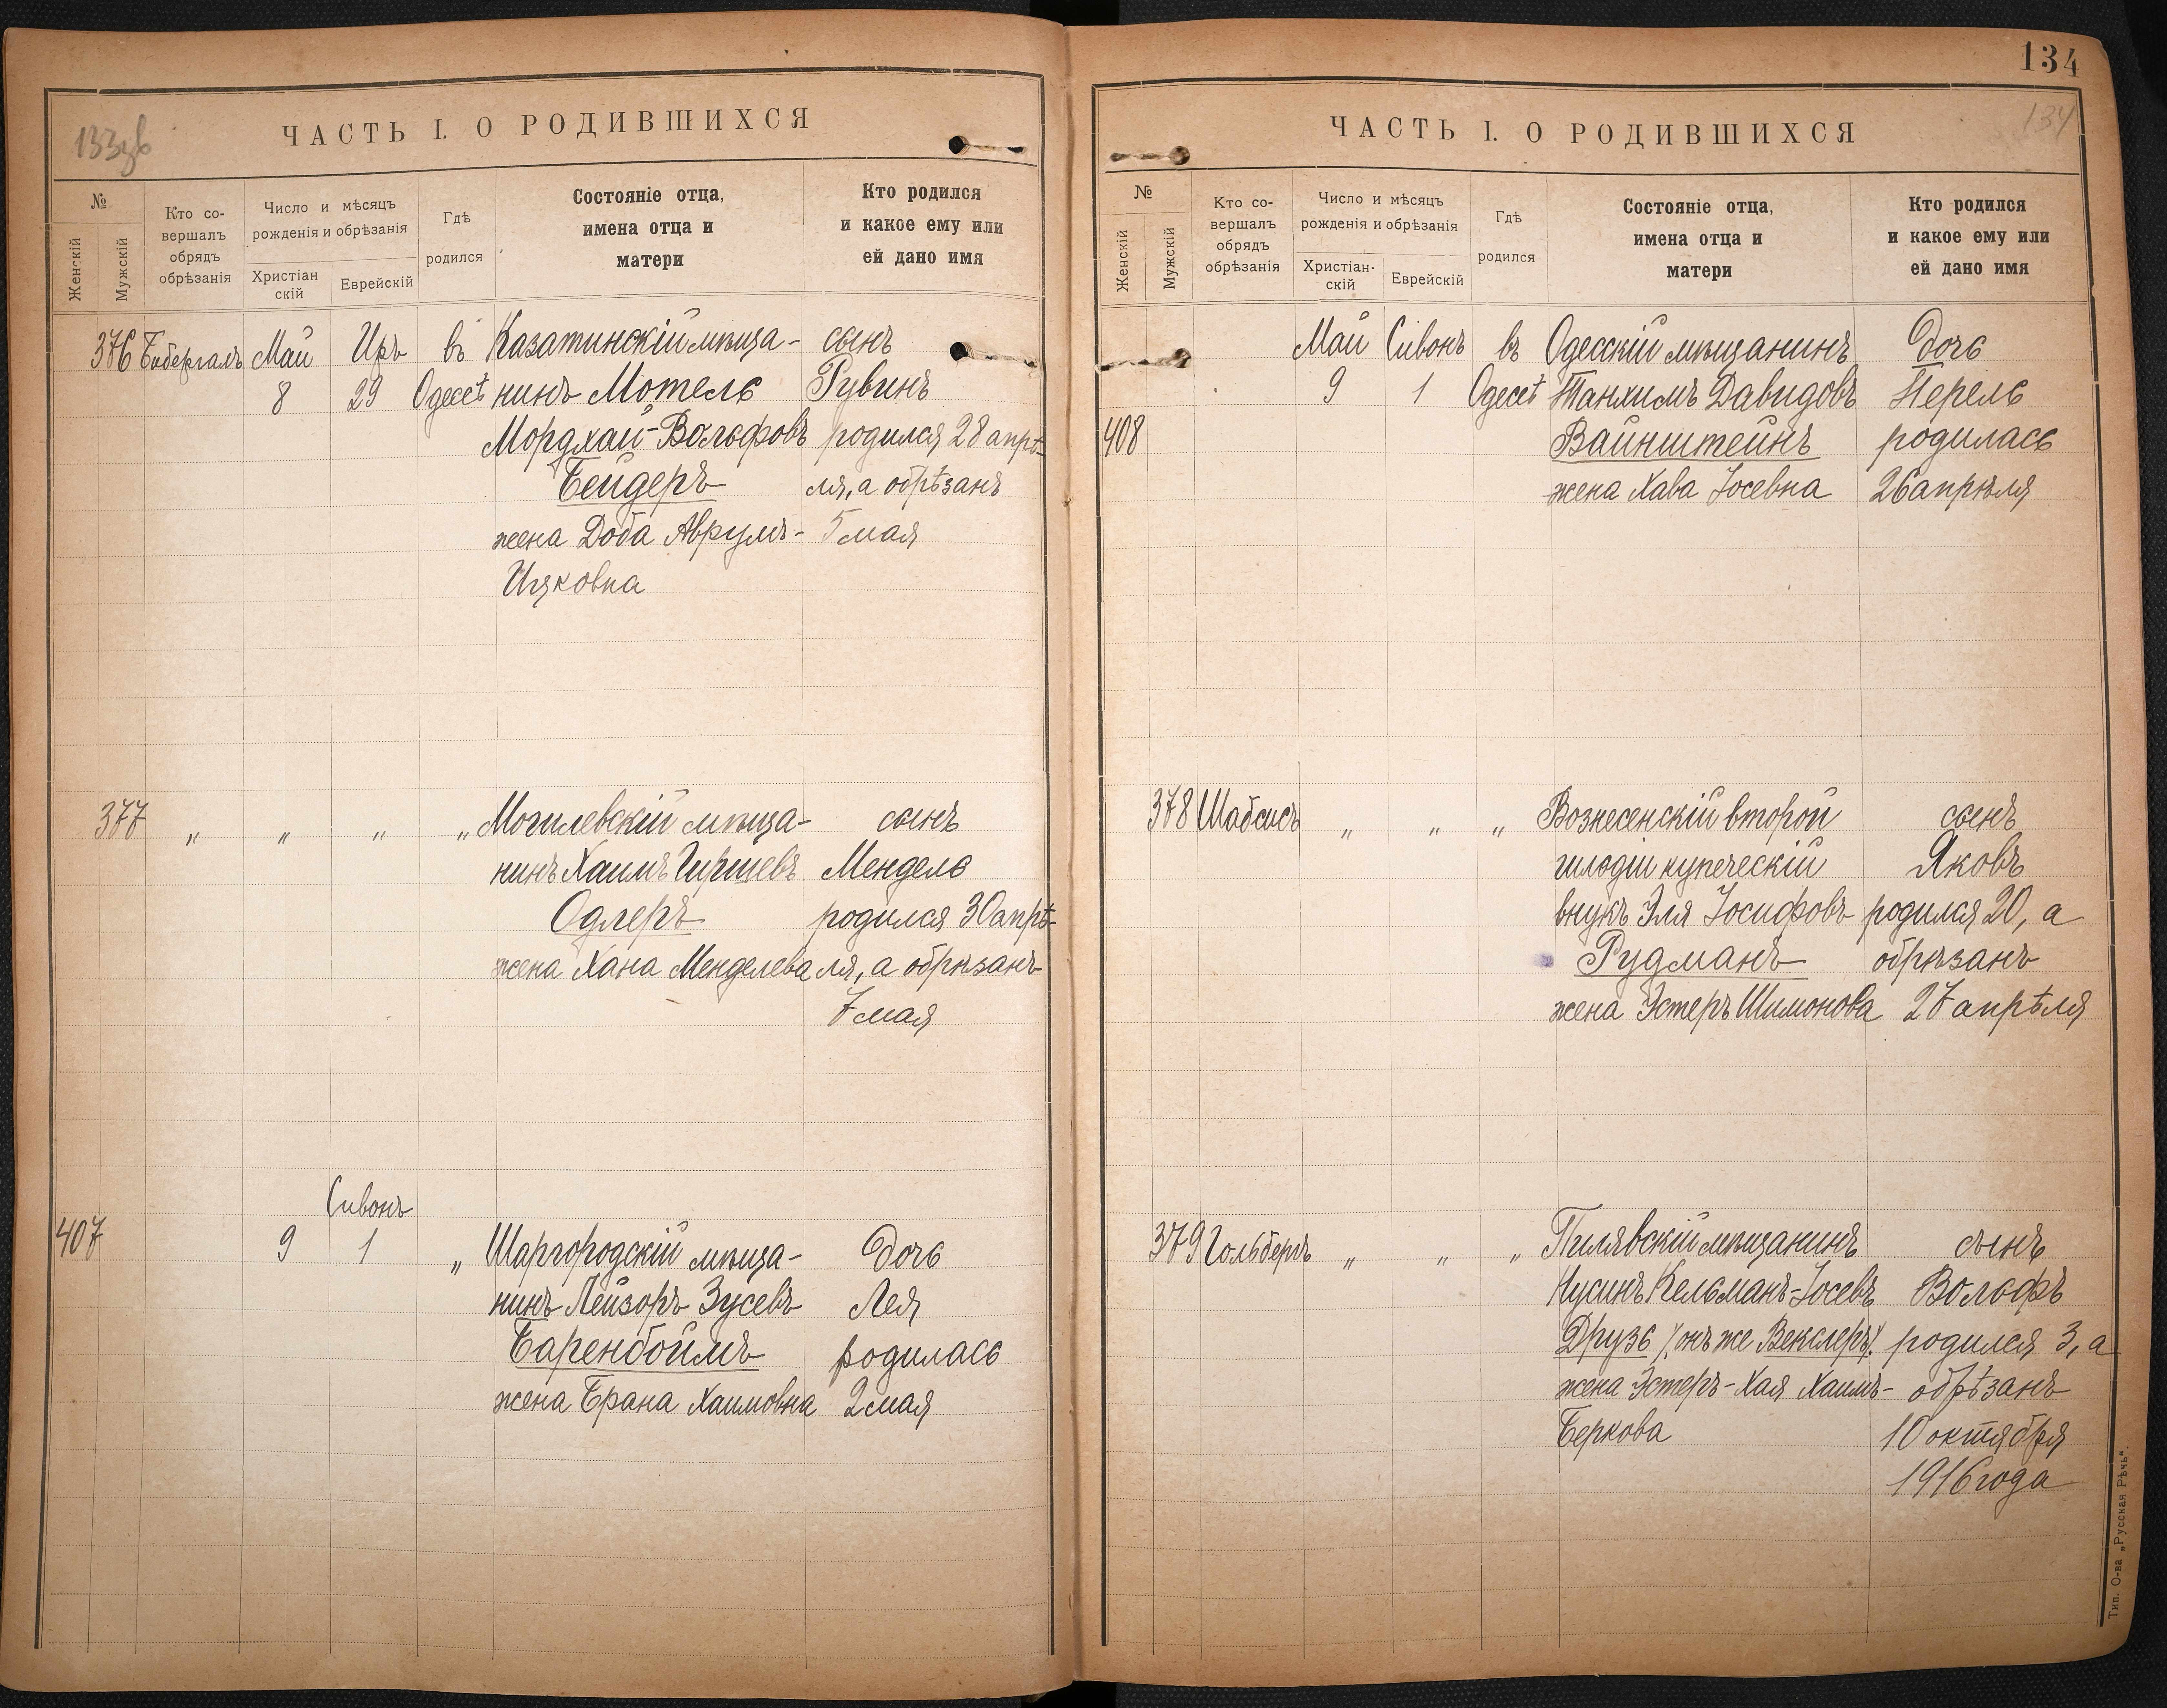 133зв
ЧАСТЬ I. О РОДИВШИХСЯ
№
Женскій
Мужскій
Кто со-
вершалъ
обрядъ
обрѣзанія
Число и мѣсяцъ
рожденія и обрѣзанія
Христіан
скій
Еврейскій
Гдѣ
родился
Состояніе отца,
имена отца и
матери
Кто родился
и какое ему или
ей дано имя
376 Бибергалъ Май Иръ въ Казатинскій мѣща- сынъ
8 29 Одессѣ нинъ Мотель Рувинъ
Мордхай-Вольфовъ родился 28 апрѣ-
Бейдеръ ля, а обрѣзанъ
жена Доба Аврумъ- 5 мая
Ицковна
377 „ „ „ „ Могилевскій мѣща- сынъ
нинъ Хаимъ Гиршевъ Мендель
Одлеръ родился 30 апрѣ-
жена Хана Менделева ля, а обрѣзанъ
7 мая
Сивонъ
407 9 1 „ Шаргородскій мѣща- дочь
нинъ Лейзоръ Зусевъ Лея
Баренбоймъ родилась
жена Брана Хаимовна 2 мая
134
134
ЧАСТЬ I. О РОДИВШИХСЯ
№
Женскій
Мужскій
Кто со-
вершалъ
обрядъ
обрѣзанія
Число и мѣсяцъ
рожденія и обрѣзанія
Христіан-
скій
Еврейскій
Гдѣ
родился
Состояніе отца,
имена отца и
матери
Кто родился
и какое ему или
ей дано имя
Май Сивонъ въ Одесскій мѣщанинъ дочь
9 1 Одессѣ Танхимъ Давидовъ Перель
408 Вайнштейнъ родилась
жена Хава Іосевна 26 апрѣля
378 Шабсисъ „ „ „ Вознесенскій второй сынъ
гильдіи купеческій Яковъ
внукъ Эля Іосифовъ родился 20, а
Рудманъ обрѣзанъ
жена Эстеръ Шимонова 27 апрѣля
379 Гольбергъ „ „ „ Пилявскій мѣщанинъ сынъ
Нусинъ Кельманъ-Іосевъ Вольфъ
Друзь /.онъ же Векслеръ/. родился 3, а
жена Эстеръ-Хая Хаимъ- обрѣзанъ
Беркова 10 октября
1916 года
Тип. О-ва „Русская Рѣчь“.